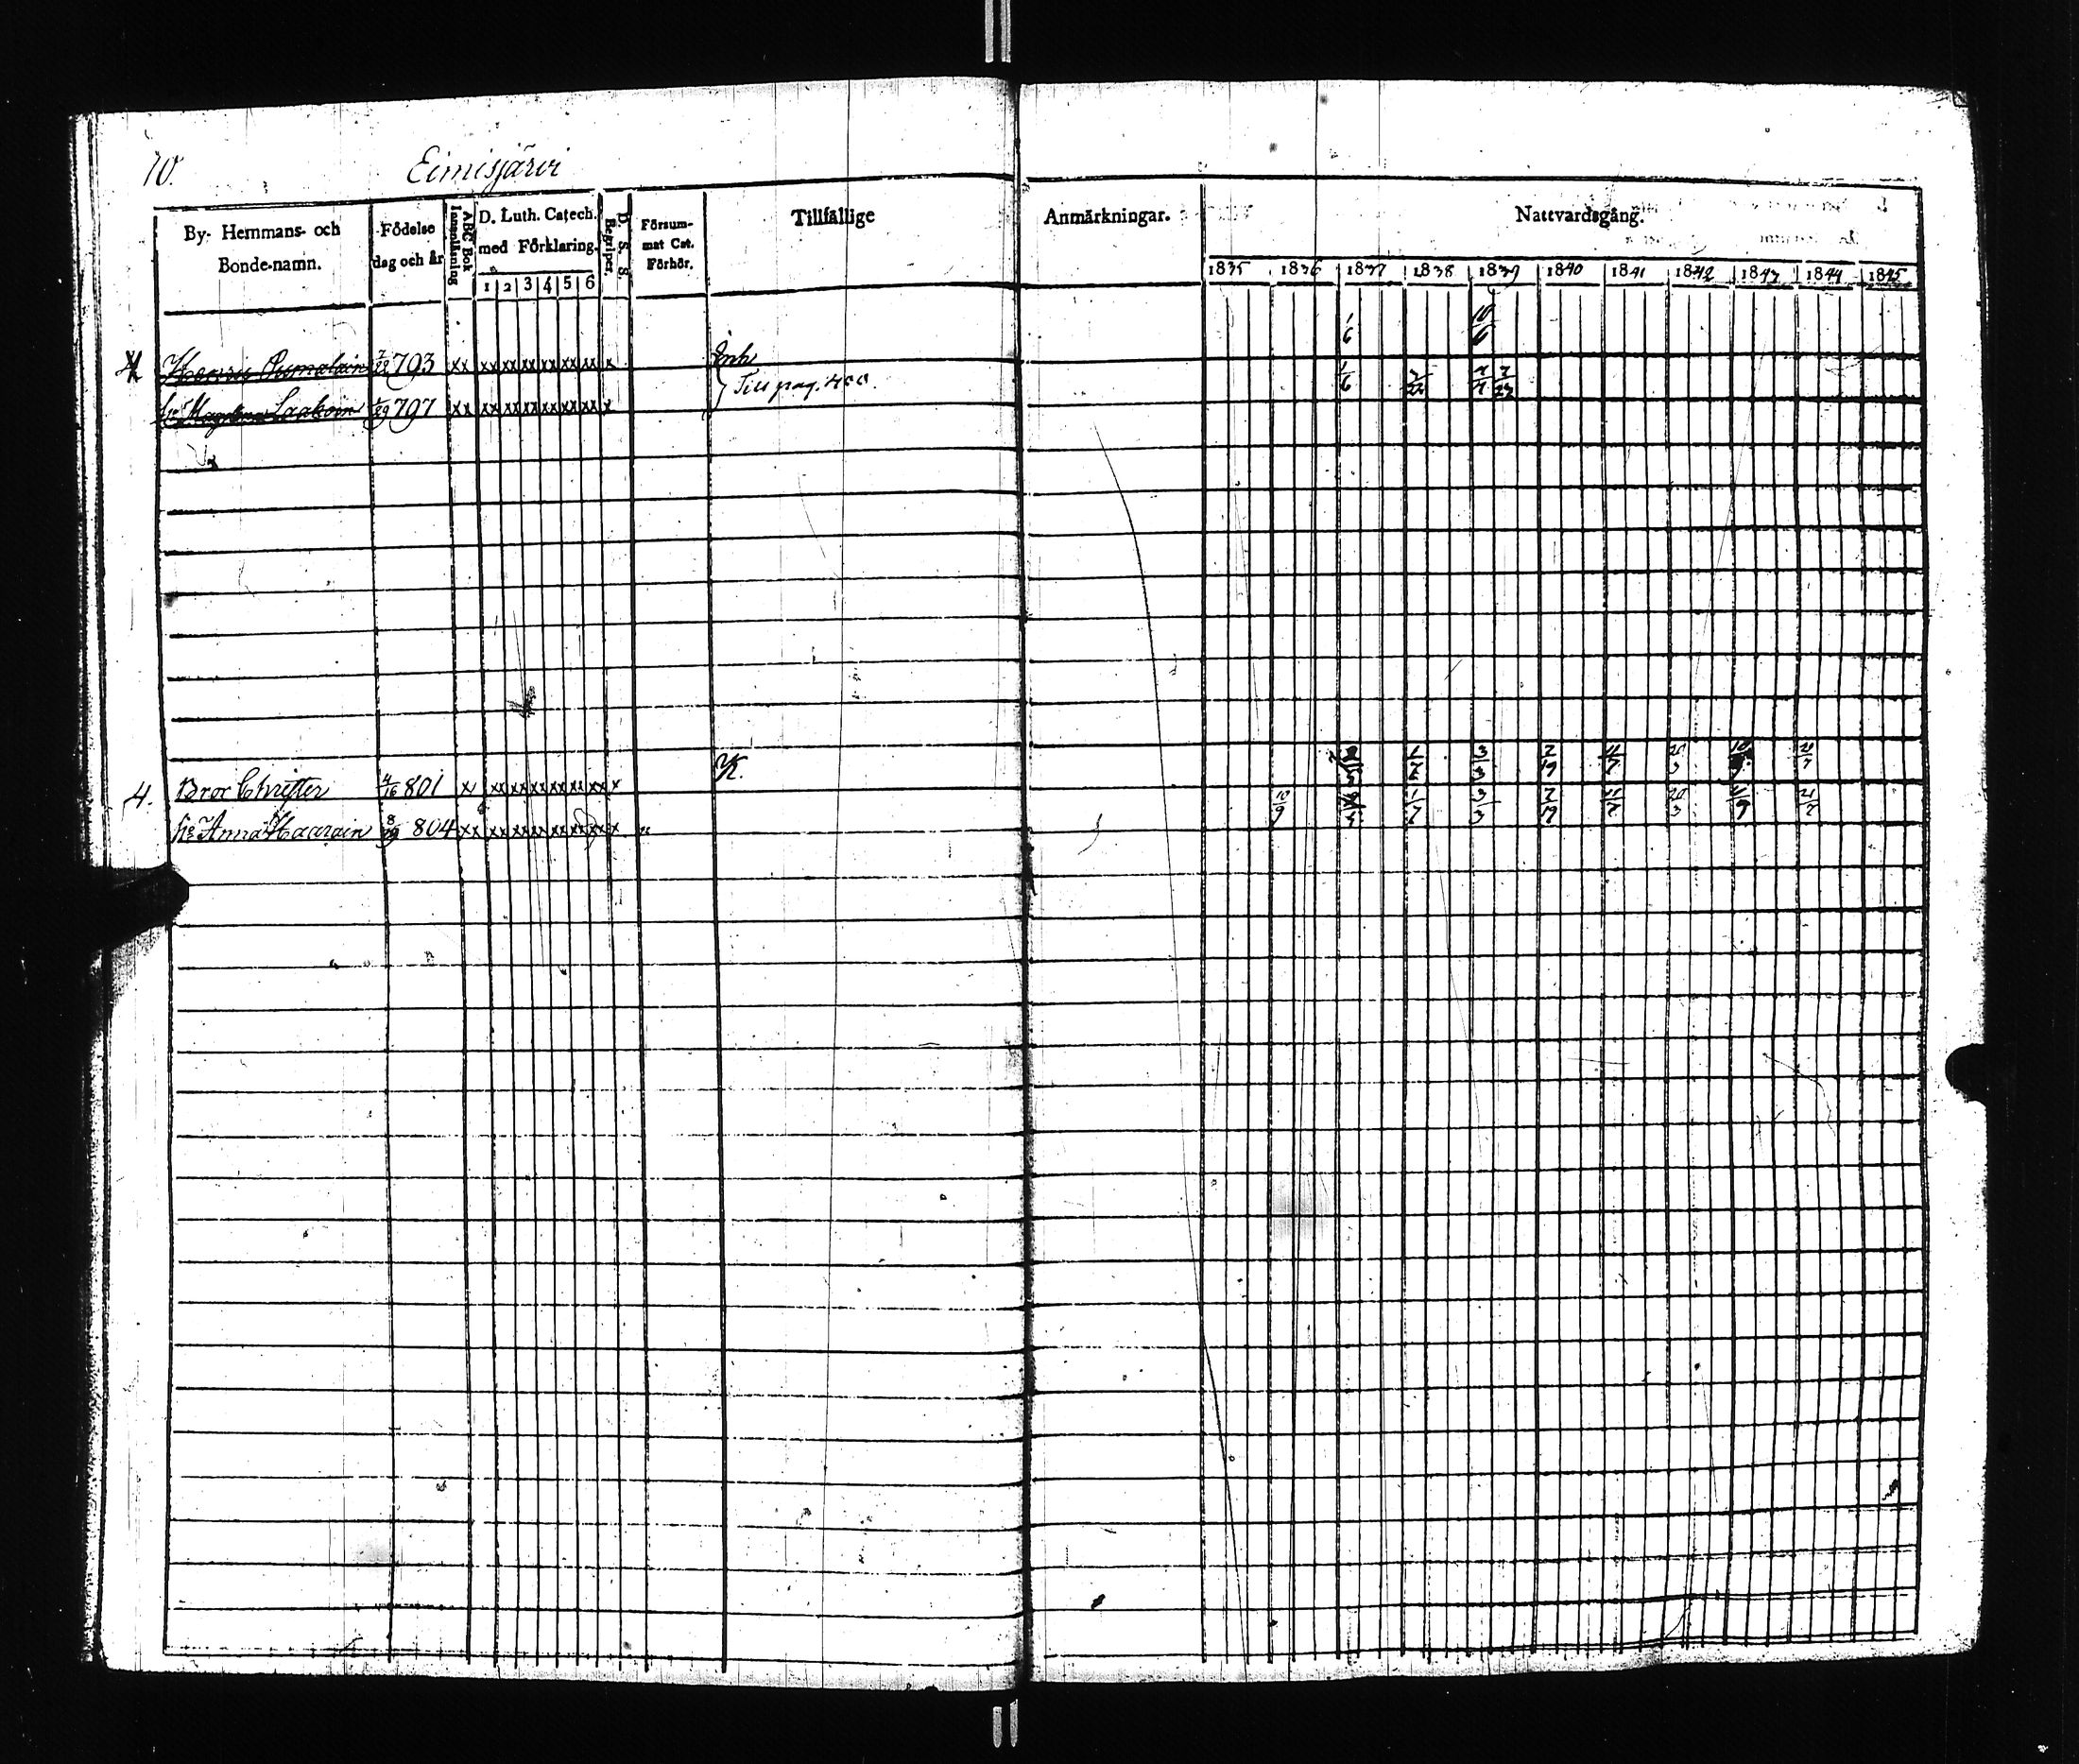 10.
Eimisjärvi
By- Hemmans- och Bonde-namn.
Födelse dag och år
ABC Bok
Innanläsning
D. Luth. Catech. med Förklaring.
1 2 3 4 5 6
D. S. S.
Begriper.
Försum-
mat Cat.
Förhör.
Tillfällige
Anmärkningar.
Nattvardsgång.
1835 1836 1837 1838 1839 1840 1841 1842 1843 1844 1845
1/6 10/6
793 xx xx xx xx xx xx xx x Enh
1/6
Hu Magdalena Laakoin 1/29 797 xx xx xx xx xx xx xx x Till pag. 400.
K.
1/7 3/3 2/19 11/7 20/3 21/7
4. Bror Christer 4/16 801 x xx xx xx xx xx xx x
10/9 1/7 3/3 2/19 11/7 20/3 11/9 21/7
Hu Anna Haarain 8/29 804 xx xx xx xx xx xx xx x "